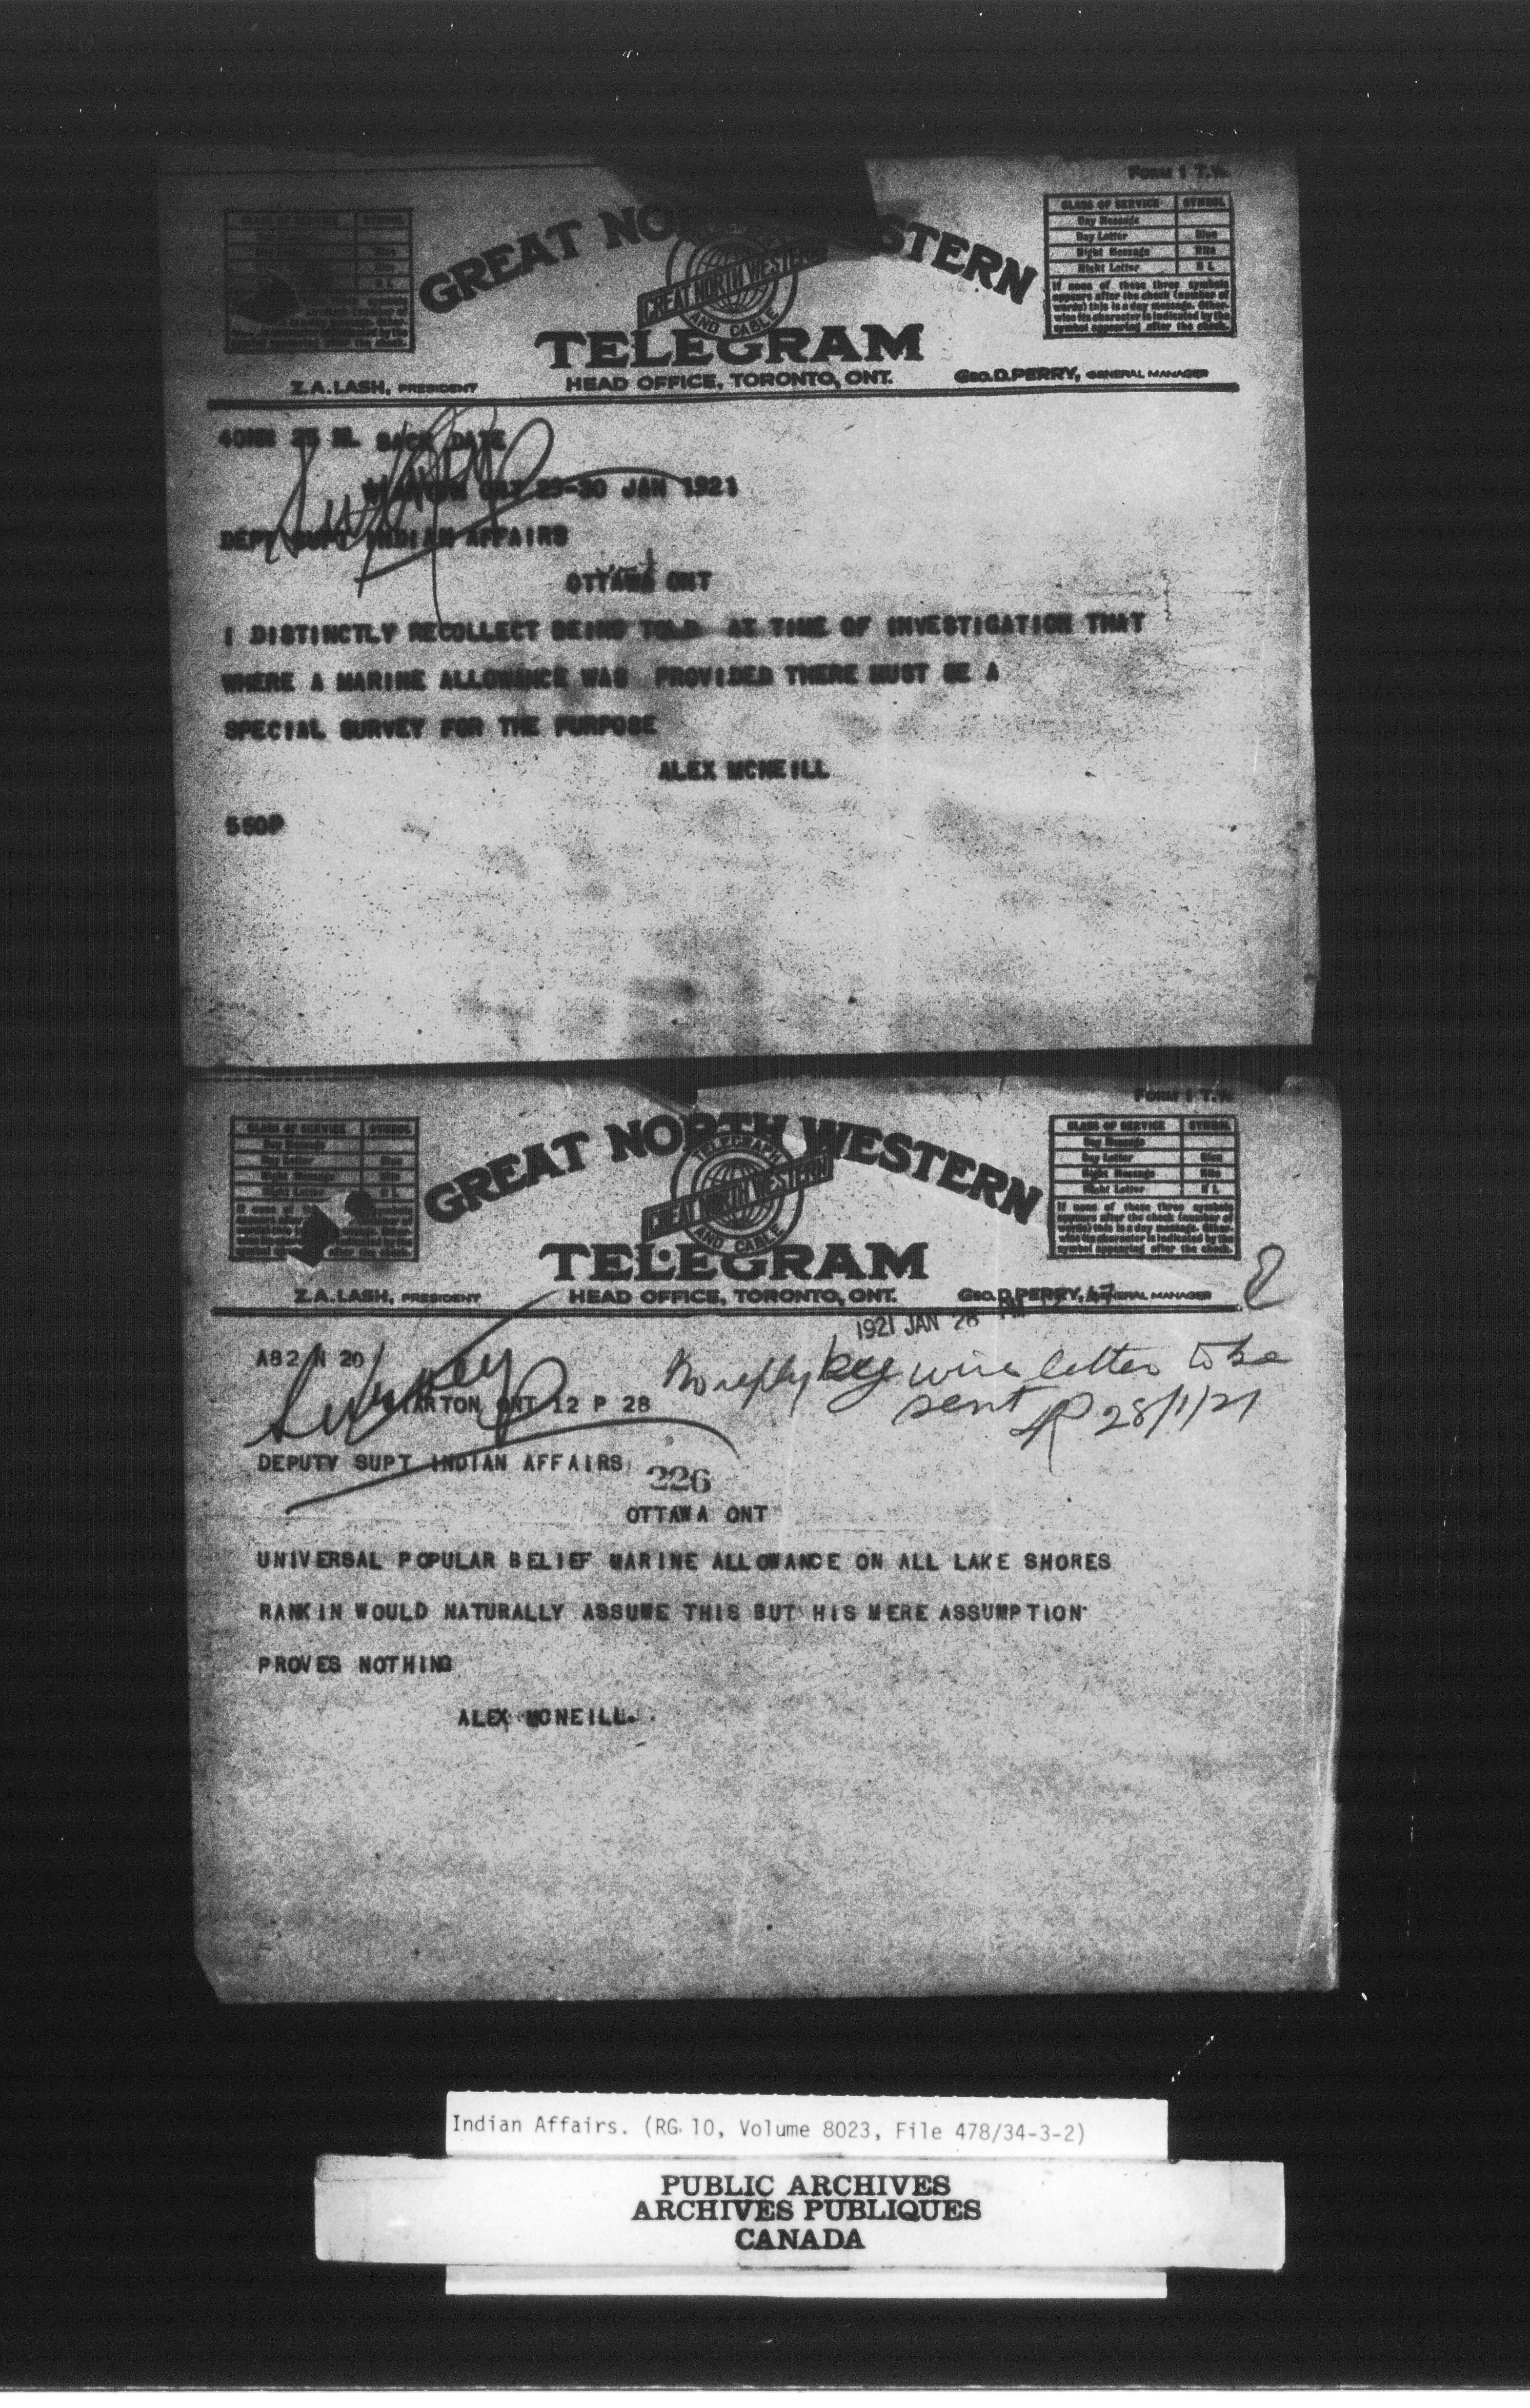 FORM 1 T.W.
CLASS OF SERVICE SYMBOL
Day Message
Day Letter Blue
Night Message Nite
Night Letter N L
If none of these three symbols
appears after the check (number of
words) this is a day message. Other-
wise its character is indicated by the
symbol appearing after the check.
CLASS OF SERVICE SYMBOL
Blue
Nite
N L
these three symbols
symbol appearing after the check.
GREAT NO STERN
TELEGRAPH
GREAT NORTH WESTERN
AND CABLE
TELEGRAM
Z.A. LASH, PRESIDENT HEAD OFFICE, TORONTO, ONT. GEO. D. PERRY, GENERAL MANAGER
40NM 25 NL BACK DATE
WIARTON ONT 29-30 JAN 1921
DEPT SUPT INDIAN AFFAIRS
OTTAWA ONT
I DISTINCTLY RECOLLECT BEING TOLD AT TIME OF INVESTIGATION THAT
WHERE A MARINE ALLOWANCE WAS PROVIDED THERE MUST BE A
SPECIAL SURVEY FOR THE PURPOSE
ALEX MCNEILL
550P
FORM 1 T.W.
CLASS OF SERVICE SYMBOL
Day Message
Day Letter Blue
Night Message Nite
Night Letter N L
CLASS OF SERVICE SYMBOL
Day Message
Day Letter Blue
Night Message Nite
Night Letter N L
If none of these three symbols
appears after the check (number of
words) this is a day message. Other-
wise its character is indicated by the
symbol appearing after the check.
GREAT NORTH WESTERN
TELEGRAPH
GREAT NORTH WESTERN
AND CABLE
TELEGRAM
Z.A. LASH, PRESIDENT HEAD OFFICE, TORONTO, ONT. GEO. D. PERRY, GENERAL MANAGER
1921 JAN 28 PM
A82 N 20
No reply by wire letter to be
sent 28/1/21
WIARTON ONT 12 P 28
DEPUTY SUPT INDIAN AFFAIRS
226
OTTAWA ONT
UNIVERSAL POPULAR BELIEF MARINE ALLOWANCE ON ALL LAKE SHORES
RANKIN WOULD NATURALLY ASSUME THIS BUT HIS MERE ASSUMPTION
PROVES NOTHING
ALEX MCNEILL.
Indian Affairs. (RG 10, Volume 8023, File 478/34-3-2)
PUBLIC ARCHIVES
ARCHIVES PUBLIQUES
CANADA